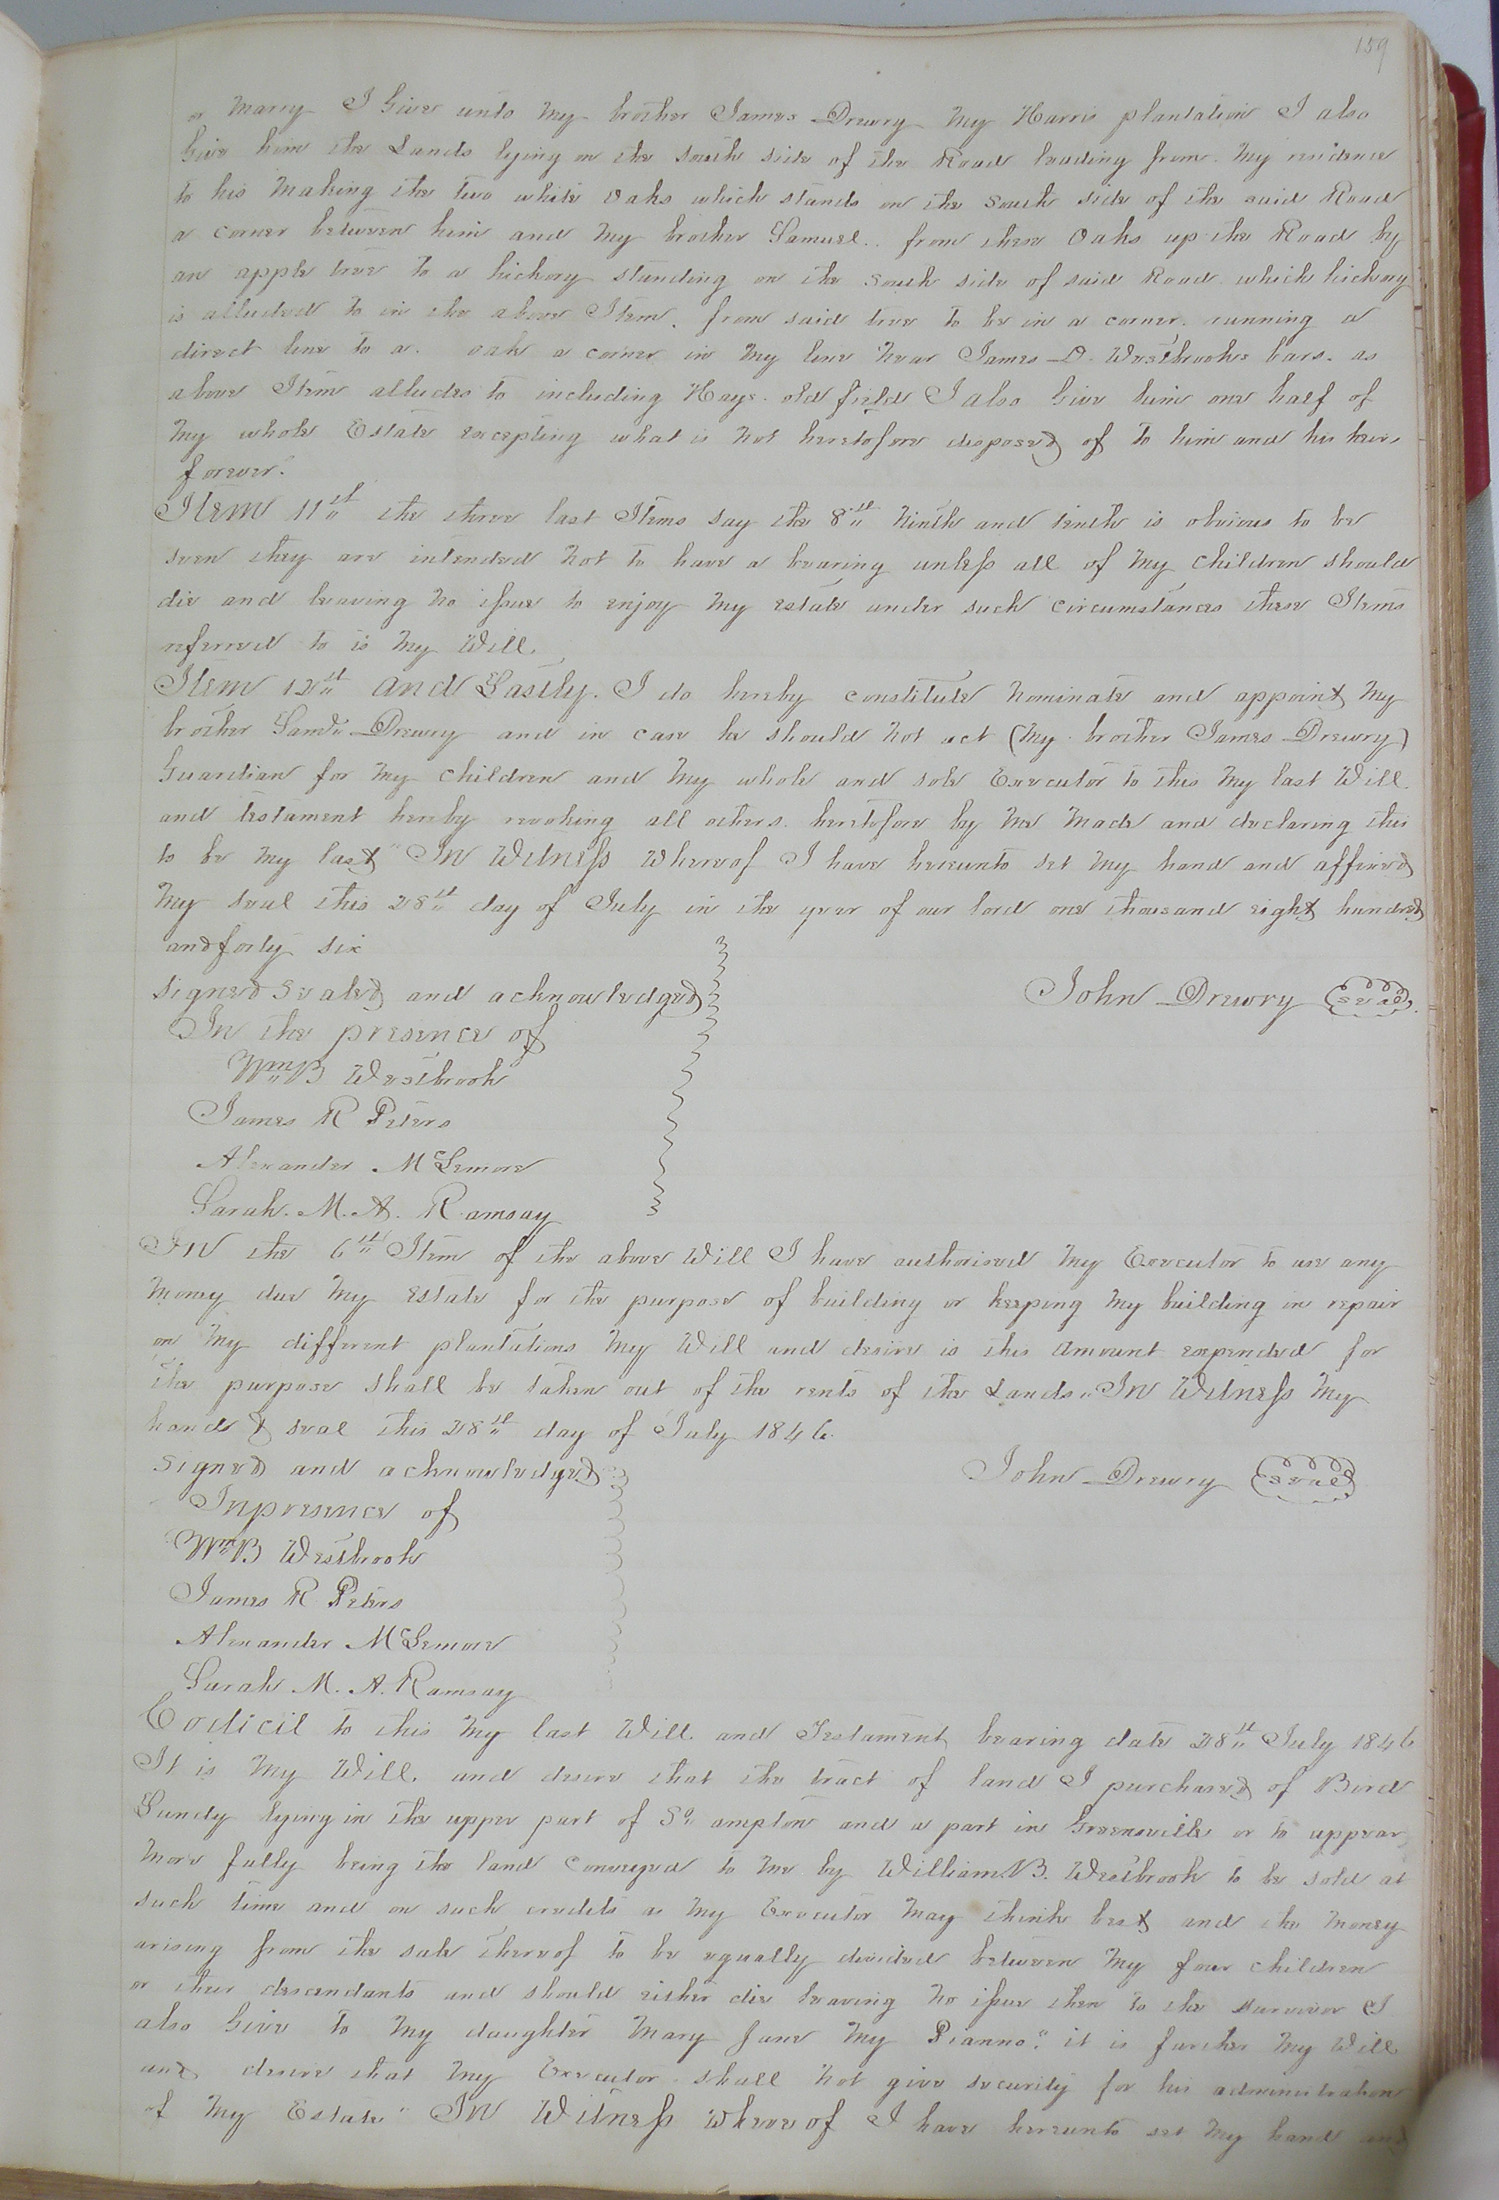 159
or Marry I Give unto My brother James Drewry My Harris plantation I also
Give him the Lands lying on the South side of the Road leading from My residence
to his Making the two white Oaks which stands on the South side of the said Road
a corner between him and My brother Samuel.. from these Oaks up the Road by
an apple tree to a hickory standing on the South side of said Road which hickory
is alluded to in the above Item. from said tree to be in a corner. running a
direct line to a. oak a corner in My line Near James D. Westbrooks bars. as
above Item alludes to including Hays. old field I also Give him one half of
My whole Estate excepting what is Not heretofore disposed of To him and his heirs
forever."
Item 11th the three last Items say the 8th Ninth and tenth is obvious to be
seen they are intended Not to have a bearing unless all of My Children should
die and leaving No issue to enjoy My estate under such circumstances these Items
referred to is My Will.
Item 12th and Lastly. I do hereby constitute Nominate and appoint My
brother Saml Drewry and in case he should Not act (My brother James Drewry)
Guardian for My Children and My whole and sole Executor to this My last Will
and testament hereby revoking all others. heretofore by Me Made and declaring this
to be My last" In Witness Whereof I have hereunto set My hand and affixed
My seal this 28th day of July in the year of our lord one thousand eight hundred
and forty six
Signed Sealed and acknowledged John Drewry Seal
In the presence of
Wm B Westbrook
James R Peters
Alexander McLemore
Sarah. M. A. Ramsay
In the 6th Item of the above Will I have authorised My Executor to use any
Money due My Estate for the purpose of building or keeping My building in repair
on My different plantations My Will and desire is this Amount expended for
the purpose shall be taken out of the rents of the Lands" In Witness My
hand & seal this 28th day of July 1846.
Signed and acknowledged John Drewry Seal
In presence of
Wm B Westbrook
James R Peters
Alexander McLemore
Sarah M. A. Ramsay
Codicil to this My last Will and Testament bearing date 28th July 1846
It is My Will. and desire that the tract of land I purchased of Bird
Lundy lying in the upper part of So ampton and a part in Greensville or to appear
More fully being the land Conveyed to Me by William B. Westbrook to be sold at
such time and on such credits as My Executor May think best and the Money
arising from the sale thereof to be equally divided between My four children
or their descendants and should either die leaving No issue then to the survivor I
also Give to My daughter Mary Jane My Pianno." it is further My Will
and desire that My Executor shall Not give security for his administration
of My Estate" In Witness Whereof I have hereunto set My hand and